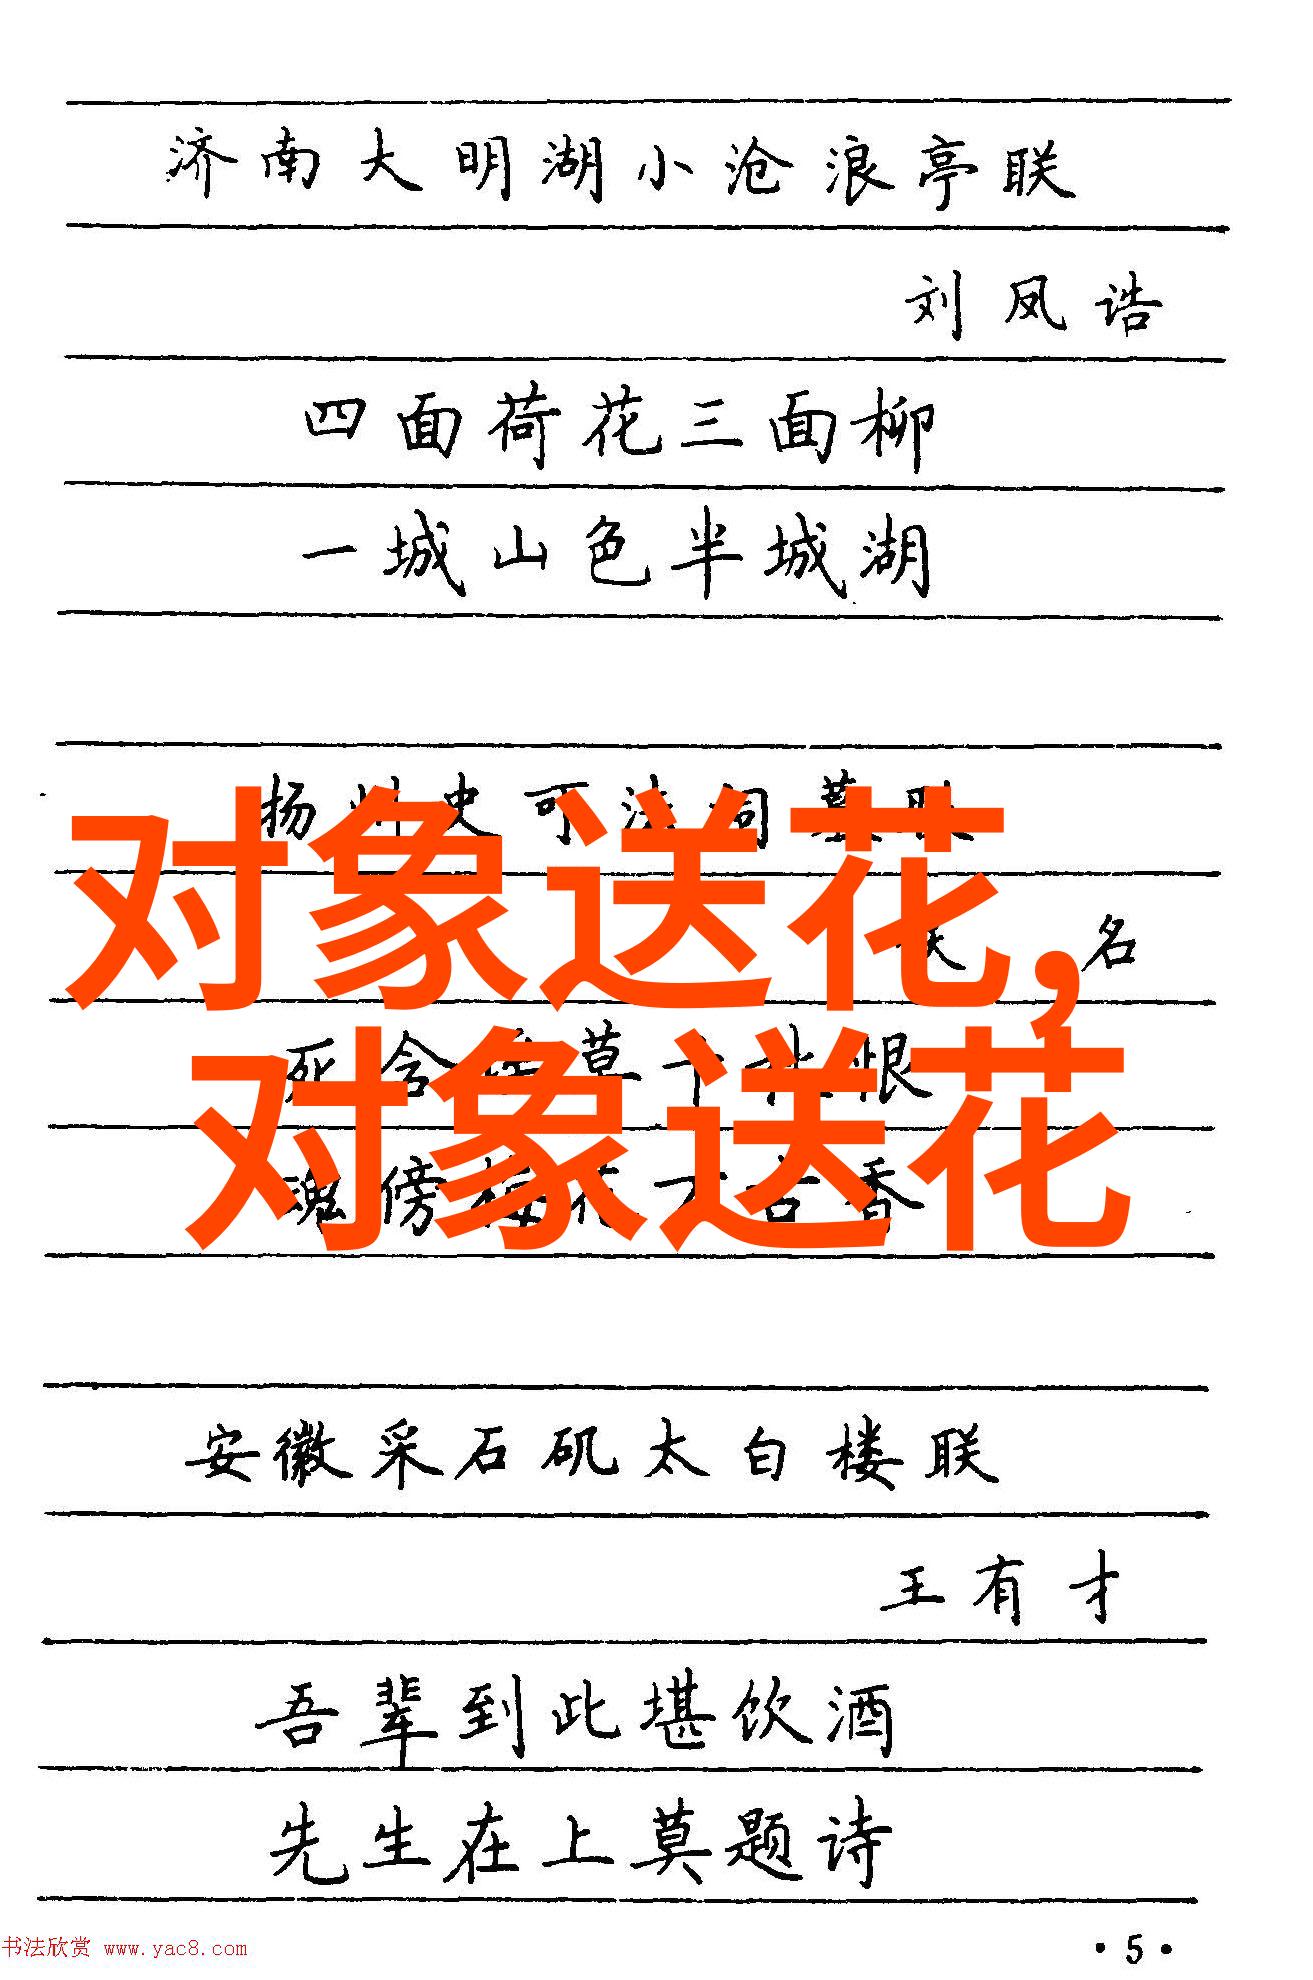 济南大明湖小沧浪亭联
刘凤诰
四面荷花三面柳
一城山色半城湖
扬州史可法祠墓联
对象送花,
名
死 含 恨
对象送花
魂傍梅花万古香
安徽采石矶太白楼联
王有才
吾辈到此堪饮酒
先生在上莫题诗
书法欣赏 www.yac8.com
·5·